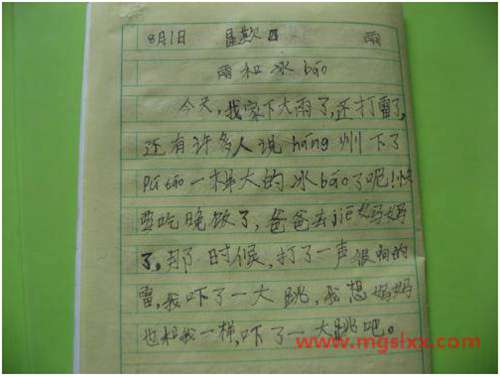 8月1日 星期四 雨
雨和冰bāo
今天,我家下大雨了,还打雷了,
还有许多人说háng州下了
Pú táo一样大的冰báo了呢!快
要吃晚饭了,爸爸去jiē妈妈
了,那时候,打了一声很响的
雷,我吓了一大跳,我想妈妈
也和我一样,吓了一大跳吧。
www.mgslxx.com